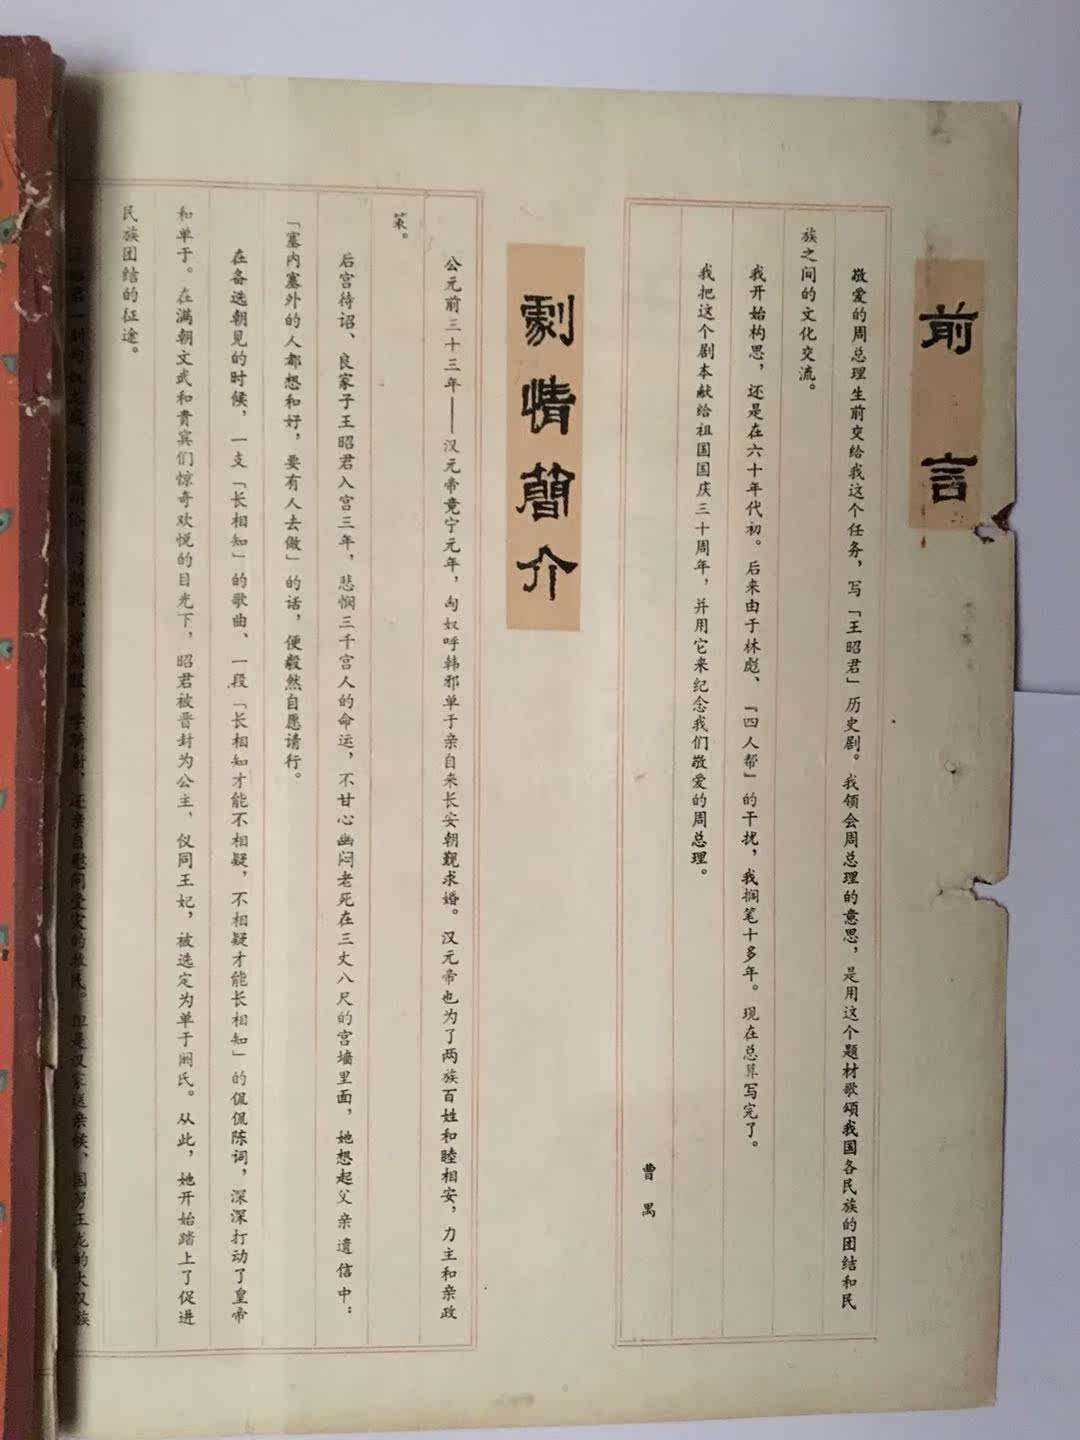 前言
敬爱的周总理生前交给我这个任务，写「王昭君」历史剧。我领会周总理的意思，是用这个题材歌颂我国各民族的团结和民
族之间的文化交流。
我开始构思，还是在六十年代初。后来由于林彪、「四人帮」的干扰，我搁笔十多年。现在总算写完了。
我把这个剧本献给祖国国庆三十周年，并用它来纪念我们敬爱的周总理。
曹禺
劇情簡介
公元前三十三年——汉元帝竟宁元年，匈奴呼韩邪单于亲自来长安朝觐求婚。汉元帝也为了两族百姓和睦相安，力主和亲政
策。
后宫待诏、良家子王昭君入宫三年，悲悯三千宫人的命运，不甘心幽闷老死在三丈八尺的宫墙里面，她想起父亲遗信中：
「塞内塞外的人都想和好，要有人去做」的话，便毅然自愿请行。
在备选朝见的时候，一支「长相知」的歌曲、一段「长相知才能不相疑，不相疑才能长相知」的侃侃陈词，深深打动了皇帝
和单于。在满朝文武和贵宾们惊奇欢悦的目光下，昭君被晋封为公主，仪同王妃，被选定为单于阏氏。从此，她开始踏上了促进
民族团结的征途。
还亲自慰问受灾的牧民。但是汉家送亲候、国舅王龙的大汉族